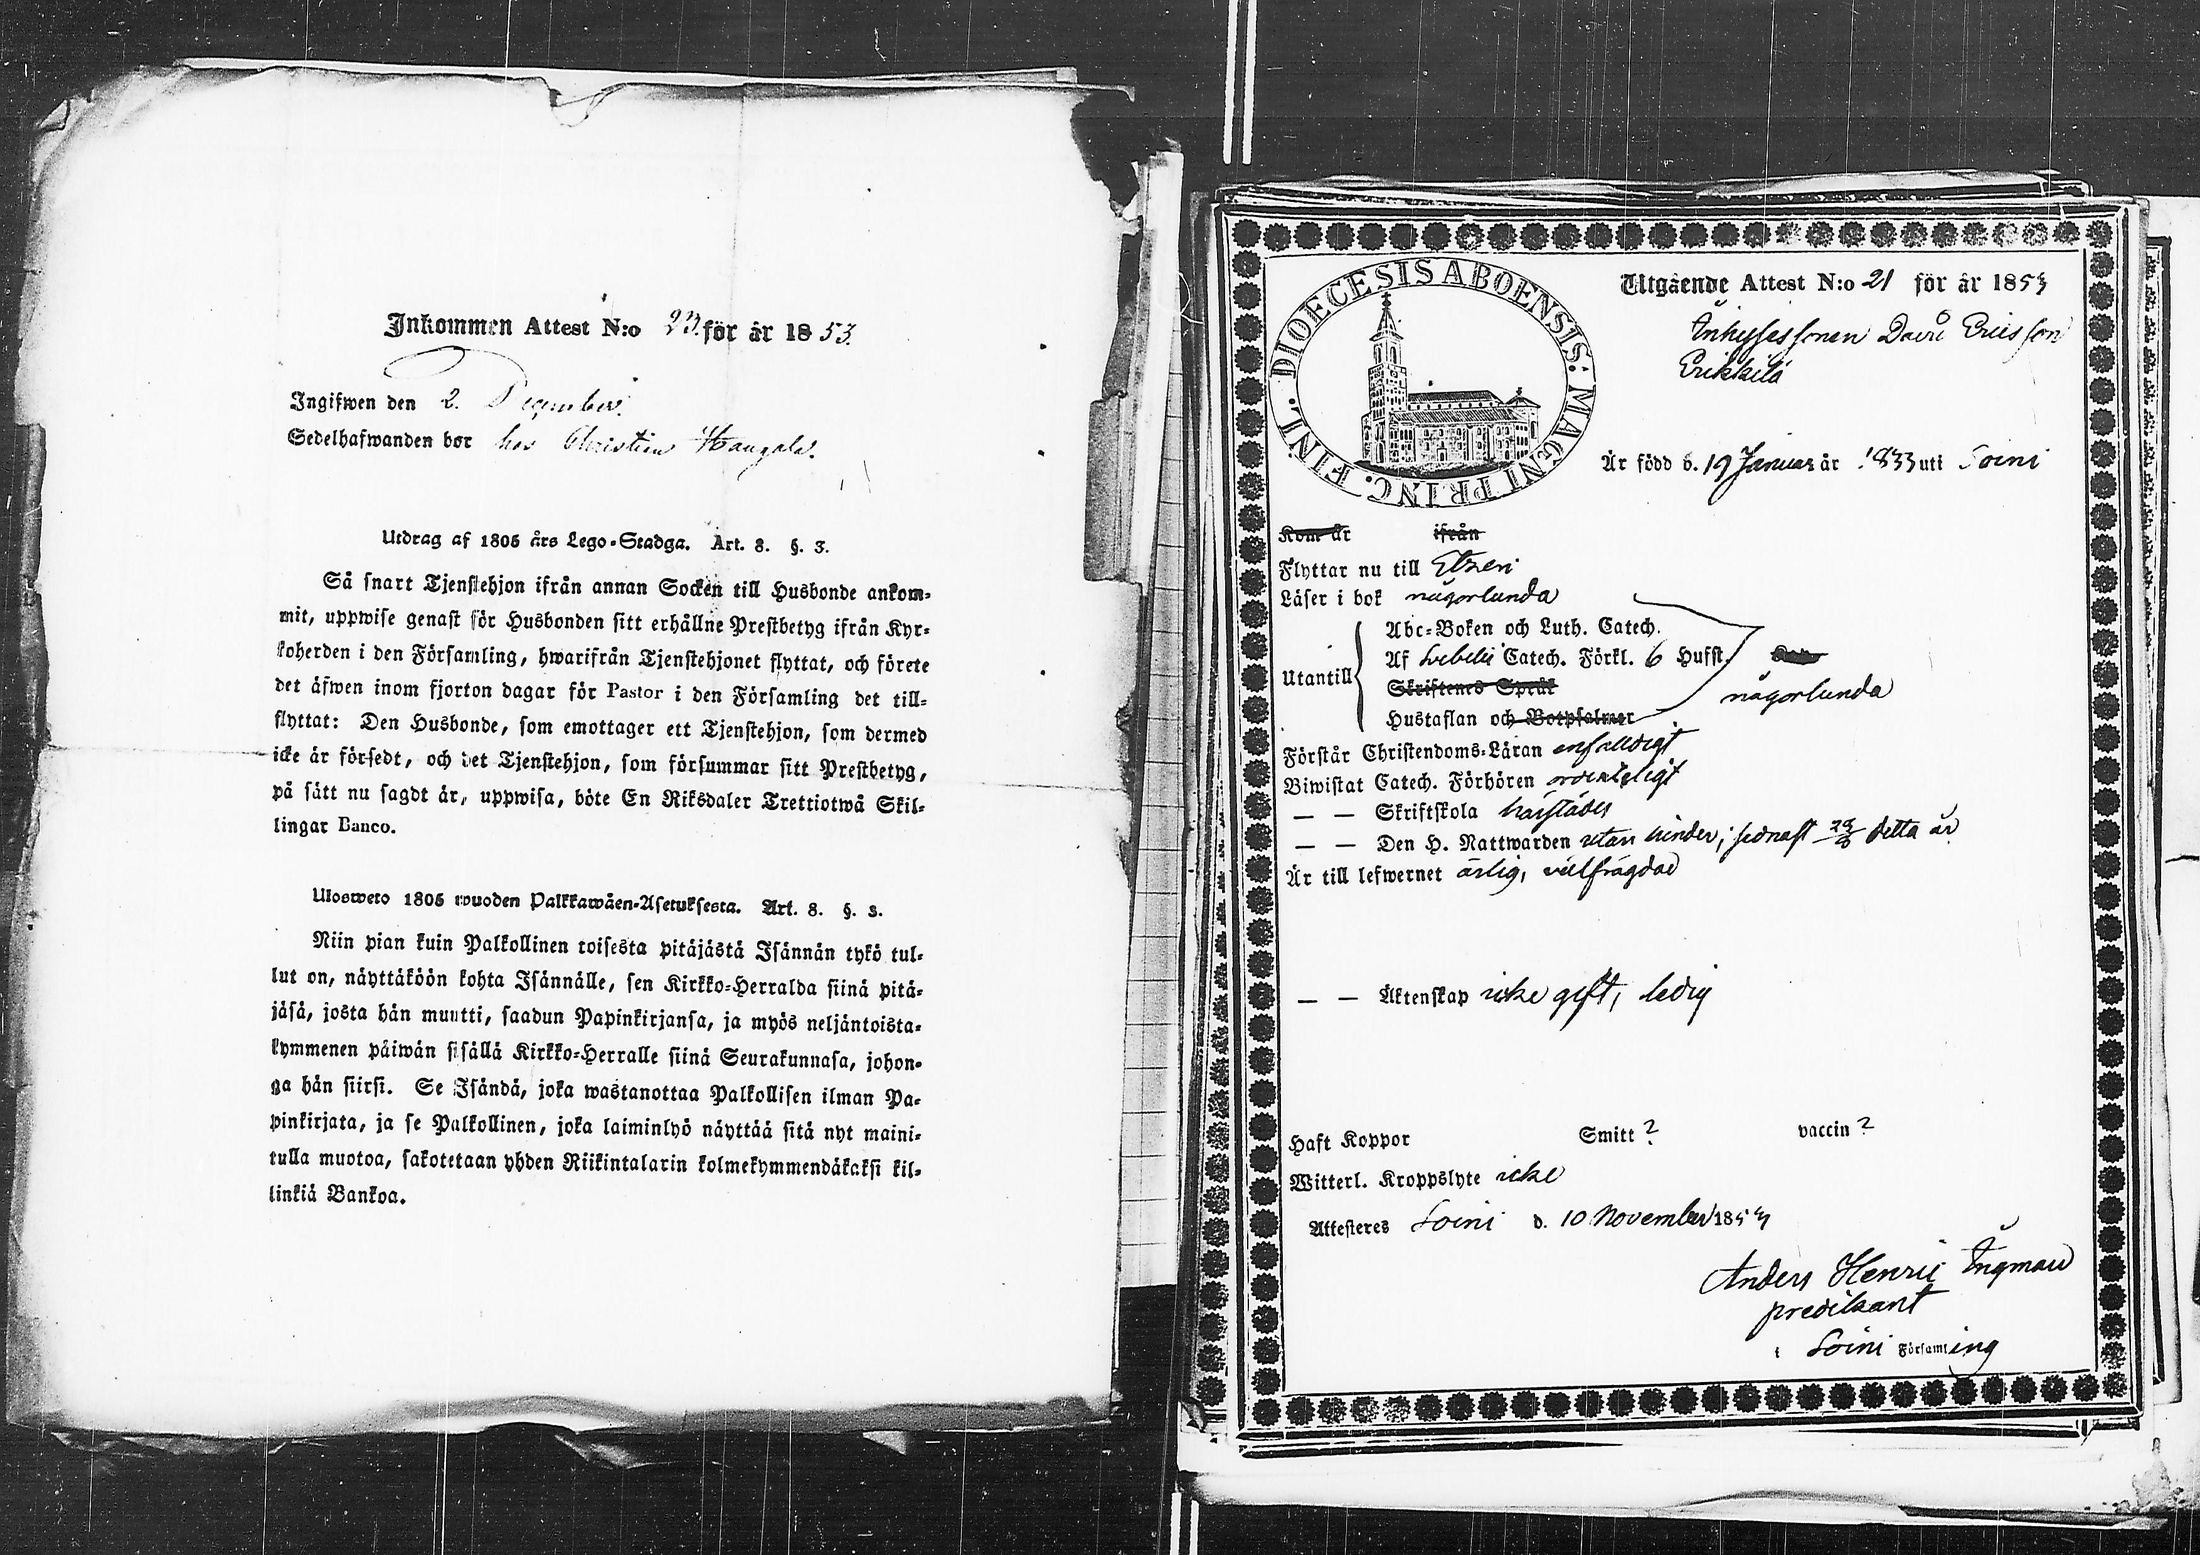 Inkommen Attest N:o 23. för år 1853.
Ingifwen den 2. December.
Sedelhafwanden bor hos Christian Haugala.
Utdrag af 1805 års Lego-Stadga. Art. 8. §. 3.
Så snart Tjenstehjon ifrån annan Socken till Husbonde ankom-
mit, uppwise genast för Husbonden sitt erhållne Prestbetyg ifrån Kyr-
koherden i den Församling, hwarifrån Tjenstehjonet flyttat, och förete
det äfwen inom fjorton dagar för Pastor i den Församling det till-
flyttat: Den Husbonde, som emottager ett Tjenstehjon, som dermed
icke är försedt, och det Tjenstehjon, som försummar sitt Prestbetyg,
på sätt nu sagdt är, uppwisa, böte En Riksdaler Trettiotwå Skil-
lingar Banco.
Ulosweto 1805 wuoden Palkkawäen-Asetuksesta. Art. 8. §. 3.
Niin pian kuin Palkollinen toisesta pitäjästä Isännän tykö tul-
lut on, näyttäköön kohta Isännälle, sen Kirkko-Herralda siinä pitä-
jäsä, josta hän muutti, saadun Papinkirjansa, ja myös neljäntoista-
kymmenen päiwän sisällä Kirkko-Herralle siinä Seurakunnasa, johon-
ga hän siirsi. Se Isändä, joka wastanottaa Palkollisen ilman Pa-
pinkirjata, ja se Palkollinen, joka laiminlyö näyttää sitä nyt maini-
tulla muotoa, sakotetaan yhden Riikintalarin kolmekymmendäkaksi kil-
linkiä Bankoa.
DIOECESIS ABOENSIS: MAGNI PRINC. FINL.
Utgående Attest N:o 21 för år 1853
Inhysessonen David Ericsson
Erikkilä
Är född d. 19 Januar år 1833 uti Soini
Kom år ifrån
Flyttar nu till Etzeri
Läser i bok någorlunda
Utantill
Abc-Boken och Luth. Catech.
Af Svebelii Catech. Förkl. 6 Hufst.
Skriftenes Språk
någorlunda
Hustaflan och Botpsalmer
Förstår Christendoms-Läran enfalldigt
Biwistat Catech. Förhören ordentligt
— — Skriftskola härstädes
— — Den H. Nattwarden utan hinder; sednast detta år
Är till lefwernet ärlig, välfrägdad
— — Äktenskap icke gift, ledig
Haft Koppor Smitt ? vaccin ?
Witterl. Kroppslyte icke
Attesteres Soini d. 10 November 1853
Anders Henric Ingman
predikant
i Soini Församling